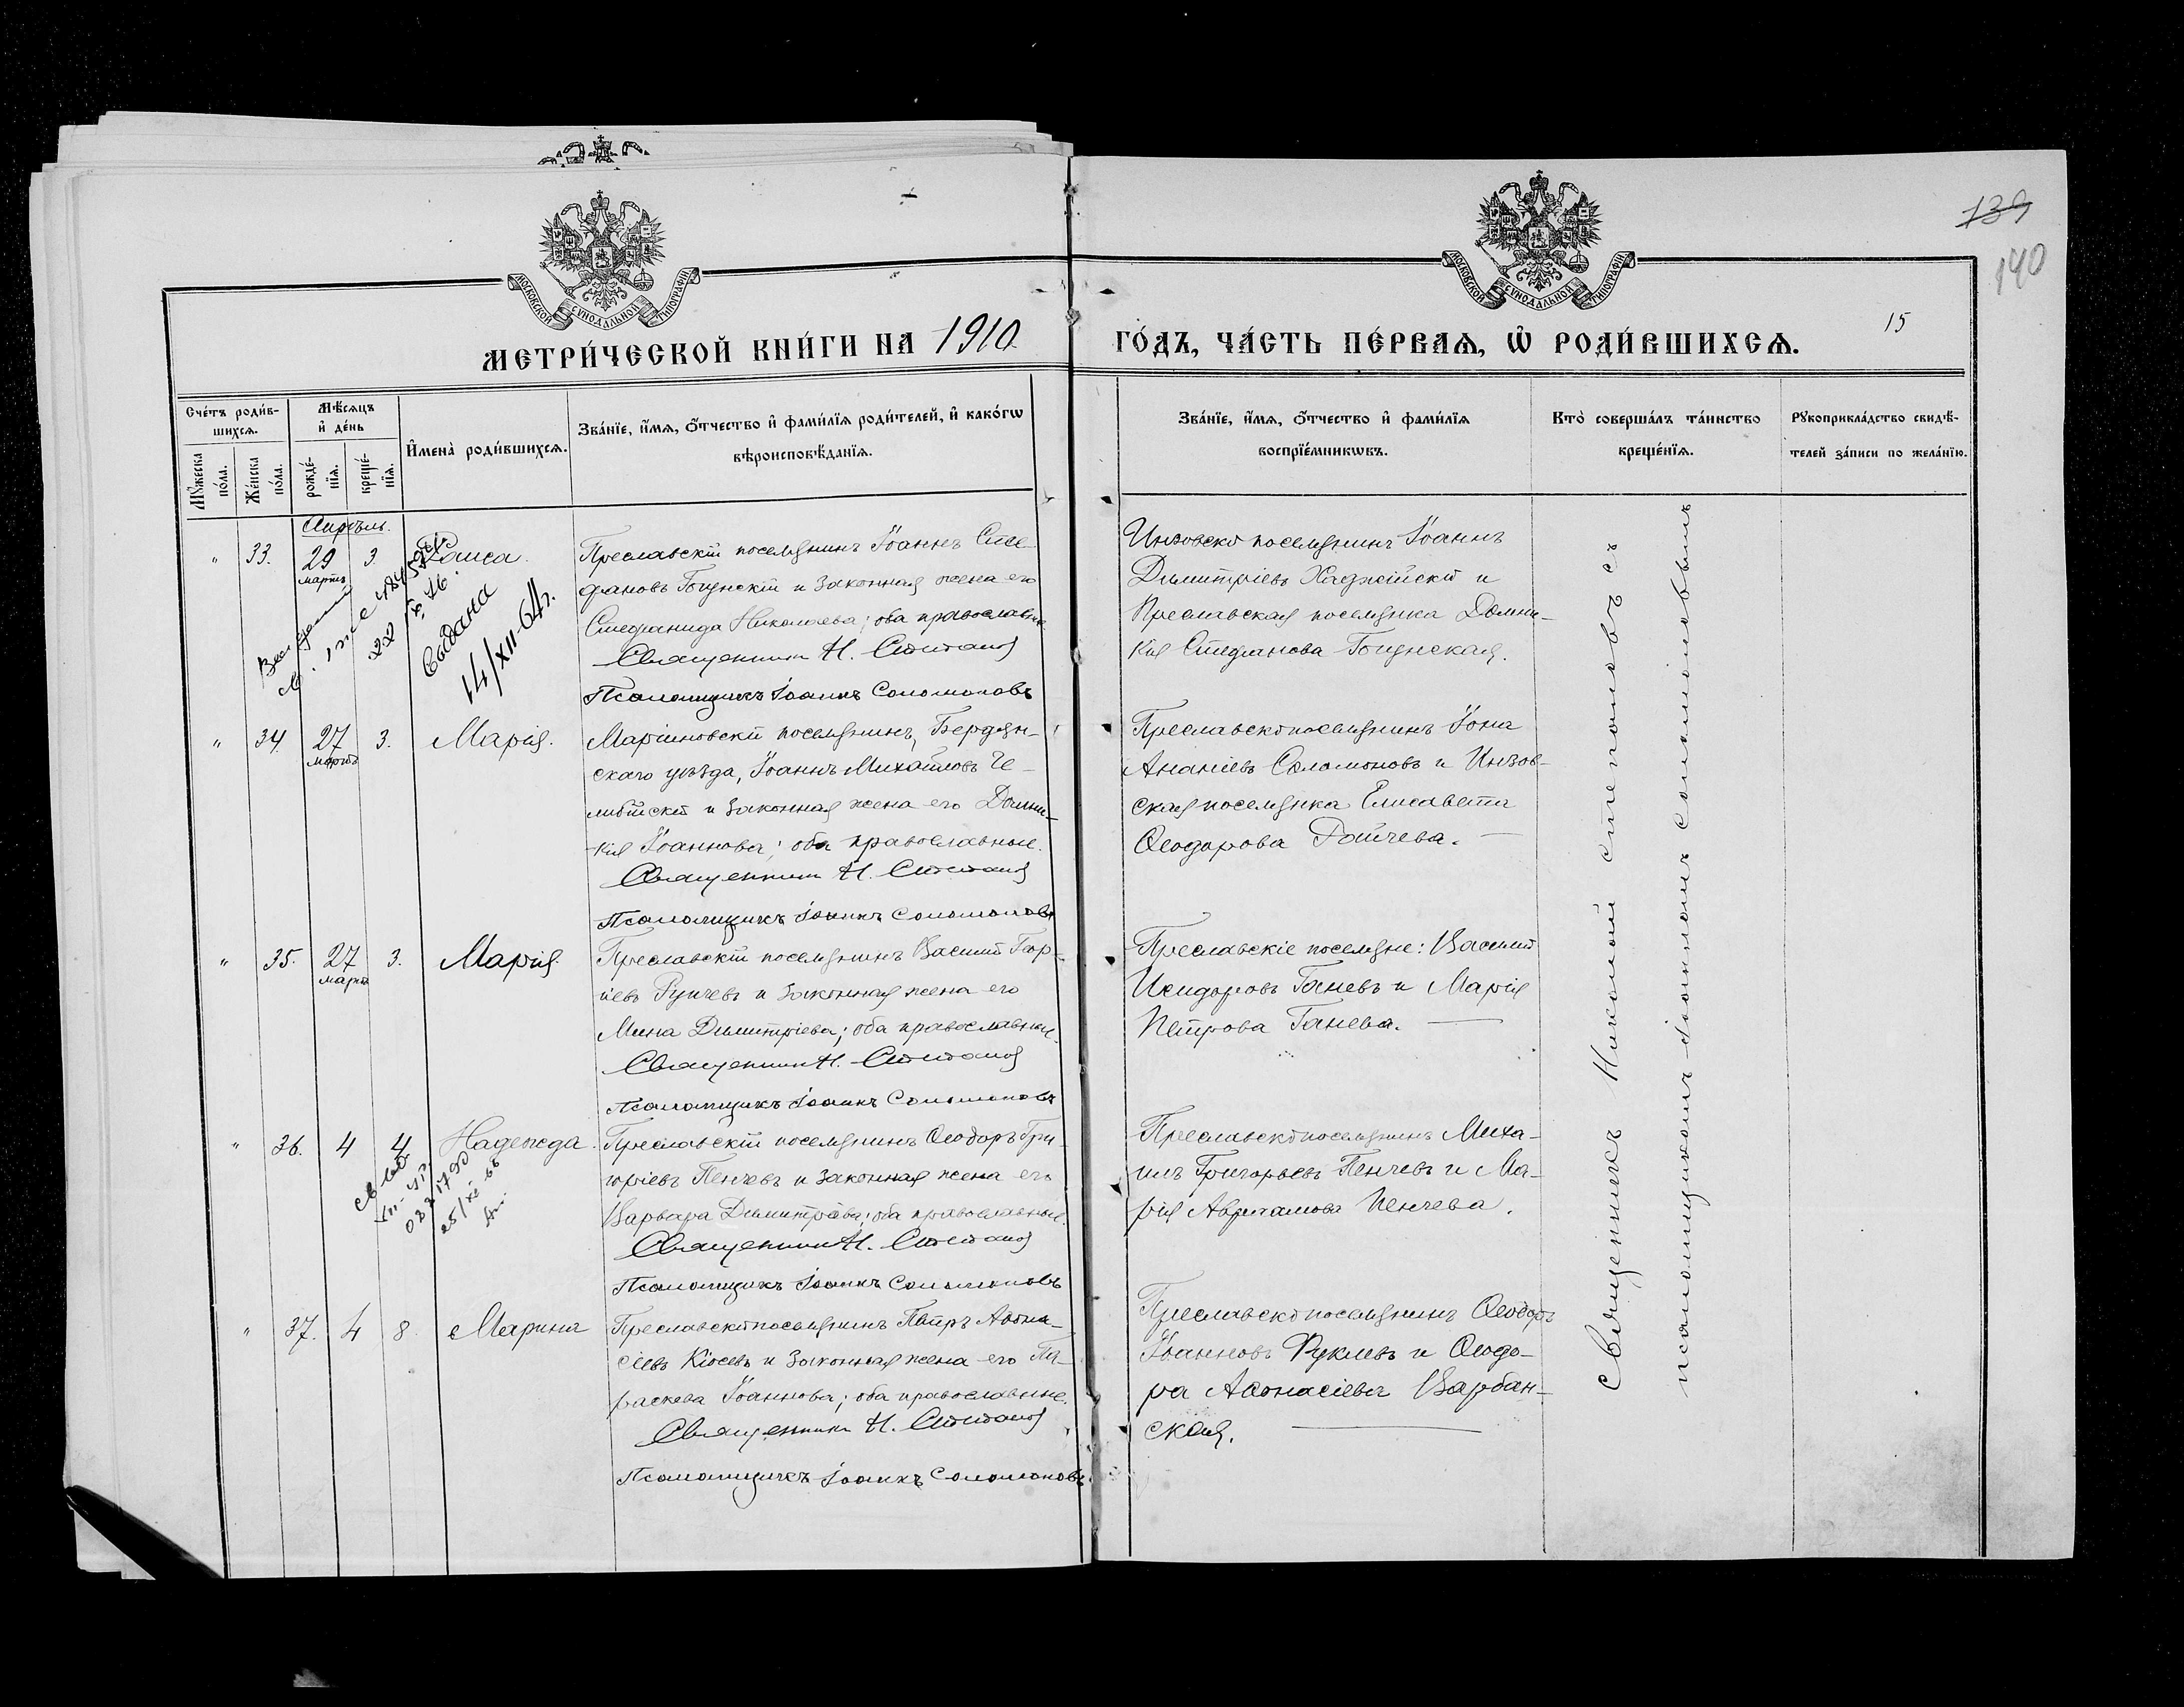 139
140
15
МОСКОВСКОЙ СѴНОДАЛЬНОЙ ТИПОГРАФІИ
МОСКОВСКОЙ СѴНОДАЛЬНОЙ ТИПОГРАФІИ
МЕТРИ́ЧЕСКОЙ КНИ́ГИ НА 1910 ГО́ДЪ, ЧА́СТЬ ПЕ́РВАѦ, Ѡ҆ РОДИ́ВШИХСѦ.
Сче́тъ роди́в-
шихсѧ.
Мꙋ́жеска по́ла.
Же́нска по́ла.
Мѣ́сѧцъ и҆ де́нь
рожде́-
нїѧ.
креще́-
нїѧ.
И҆мена̀ роди́вшихсѧ.
Зва́нїе, и҆́мѧ, ѻ҆́тчество и҆ фами́лїѧ роди́телей, и҆ како́гѡ
вѣроисповѣ́данїѧ.
Зва́нїе, и҆́мѧ, ѻ҆́тчество и҆ фами́лїѧ
воспрїе́мникѡвъ.
Кто̀ соверша́лъ та́инство
креще́нїѧ.
Рꙋкоприкла́дство свидѣ́-
телей за́писи по жела́нїю.
Апрѣль.
" 33. 29 марта 3. Раиса.
Преславскій поселянинъ Іоаннъ Сте-
фановъ Гоцунскій и законная жена его
Стефанида Николаева; оба православные
Священникъ Н. Ститановъ
Псаломщикъ Іоаннъ Соломоновъ
Инзовскій поселянинъ Іоаннъ
Димитріевъ Хаджійскій и
Преславская поселянка Домни-
кія Стефанова
22/X 76.
выдана
14/XII-64 г.
" 34. 27 марта 3. Марія.
Маріиновскій поселянинъ, Бердян-
скаго уѣзда, Іоаннъ Михайловъ Че-
либійскій и законная жена его Домни-
кія Іоаннова; оба православные.
Священникъ Н.
Псаломщикъ Іоаннъ Соломоновъ
Преславскій поселянинъ Іона
Ананіевъ Соломоновъ и Инзов-
ская поселянка Елисавета
Ѳеодорова Райчева.
" 35. 27 марта 3. Марія.
Преславскій поселянинъ Василій Геор-
гіевъ Рунчевъ и законная жена его
Мина Димитріева; оба православные.
Священникъ Н.
Псаломщикъ Іоаннъ Соломоновъ
Преславскіе поселяне: Василій
Исидоровъ Ганевъ и Марія
Петрова Ганева.
" 36. 4 4 Надежда.
Преславскій поселянинъ Ѳеодоръ Гри-
горіевъ Пенчевъ и законная жена его
Варвара Димитріева; оба православные.
Священникъ Н.
Псаломщикъ Іоаннъ Соломоновъ
Преславскій поселянинъ Миха-
илъ Григорьевъ Пенчевъ и Ма-
рія Авраамова Пенчева.
25/XI-66
" 37. 4 8. Марина
Преславскій поселянинъ Петръ Аѳона-
сіевъ Кіосевъ и законная жена его Па-
раскева Іоаннова; оба православные.
Священникъ Н.
Псаломщикъ Іоаннъ Соломоновъ
Преславскій поселянинъ Ѳеодоръ
Іоанновъ Фуклевъ и Ѳеодо-
ра Аѳонасіева Варбан-
ская.
Священникъ Николай съ
псаломщикомъ Іоанномъ Соломоновымъ